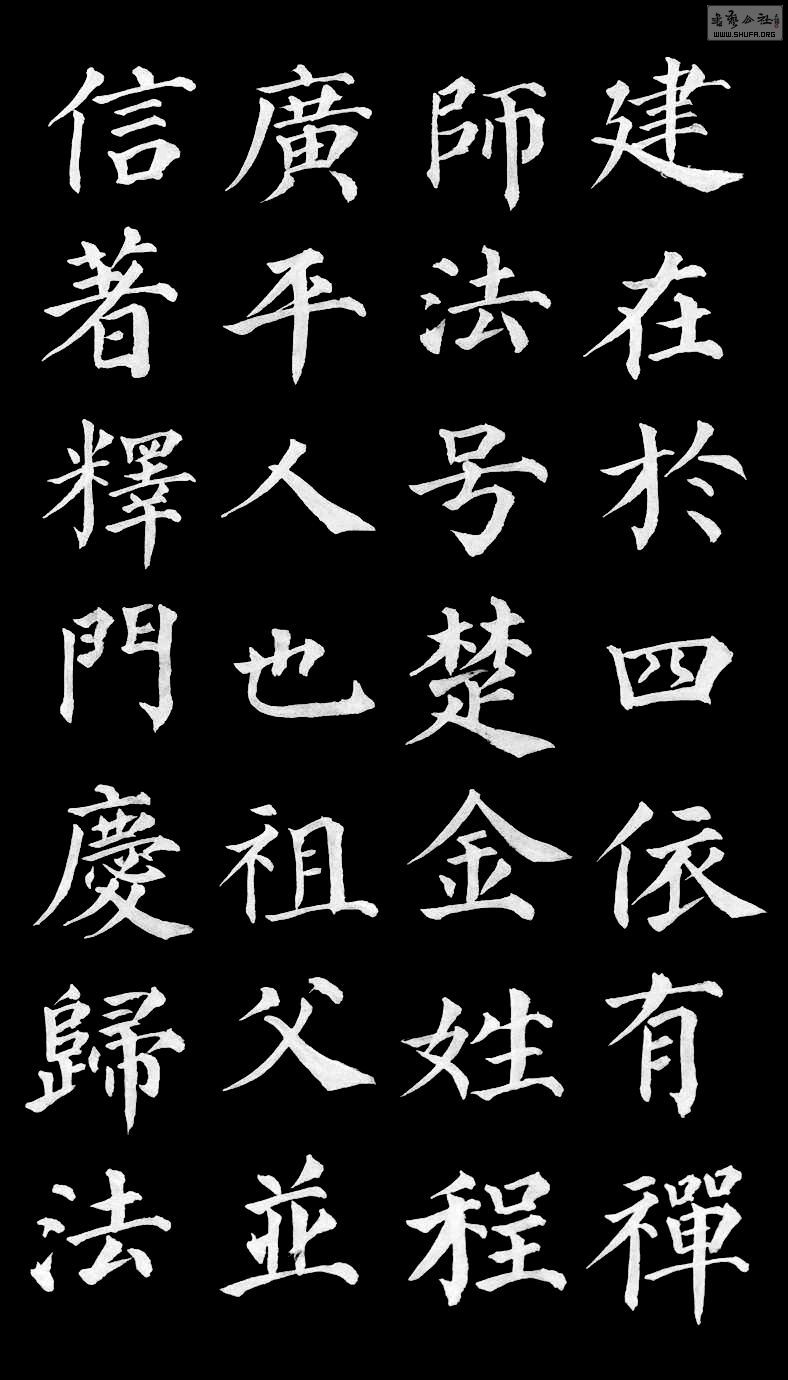 建在於四依有禪
師法号楚金姓程
廣平人也祖父並
信著釋門慶歸法
WWW.SHUFA.ORG